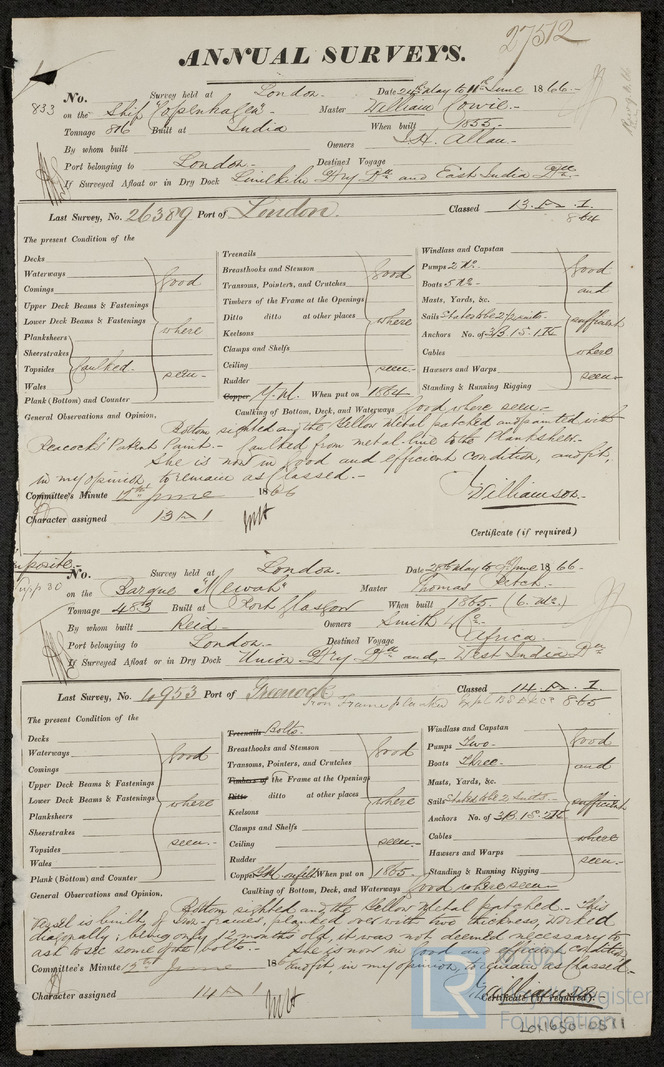 27512
ANNUAL SURVEYS.
No. Survey held at London. Date 24th May to 11th June 1866.
833 on the Ship "Copenhagen" Master William Cowie.
Tonnage 816 Built at India When built 1855.
By whom built Owners J. H. Allan.
Port belonging to London. Destined Voyage
If Surveyed Afloat or in Dry Dock Limekiln Dry Dk and East India Dk
Last Survey, No. 26389 Port of London. Classed 13. A. 1.
864
The present Condition of the
Decks
Waterways
Comings
Upper Deck Beams & Fastenings
Lower Deck Beams & Fastenings
Planksheers
Sheerstrakes
Topsides Caulked.
Wales
Plank (Bottom) and Counter
good where seen.
Treenails
Breasthooks and Stemson
Transoms, Pointers, and Crutches
Timbers of the Frame at the Openings
Ditto ditto at other places
Keelsons
Clamps and Shelfs
Ceiling
Rudder
Copper Y.M. When put on 1864
good where seen.
Windlass and Capstan
Pumps 2 No.
Boats 5 No.
Masts, Yards, &c.
Sails Stated to be 2 suits.
Anchors No. of 3B. 1S. 1K
Cables
Hawsers and Warps
Standing & Running Rigging
good and sufficient where seen.
Caulking of Bottom, Deck, and Waterways Good where seen.
General Observations and Opinion. Bottom sighted and the Yellow Metal patched and painted with
Peacock's Patent Paint. Caulked from metal-line to the Planksheer.
She is now in good and efficient condition, and fit,
in my opinion, to remain as Classed.
Committee's Minute 12th June 1866
Williamson.
Character assigned 13 A 1
Certificate (if required)
Composite.
No. Survey held at London. Date 28th May to June 1866.
on the Barque "Meivah" Master Thomas Pitch.
Tonnage 483 Built at Port Glasgow When built 1865. (6. Mo.)
By whom built Reid Owners Smith & Co.
Port belonging to London. Destined Voyage Africa.
If Surveyed Afloat or in Dry Dock Union Dry Dk and West India Dk
Last Survey, No. 4953 Port of Greenock Classed 14. A. 1.
Iron Frame planked 865
The present Condition of the
Decks
Waterways
Comings
Upper Deck Beams & Fastenings
Lower Deck Beams & Fastenings
Planksheers
Sheerstrakes
Topsides
Wales
Plank (Bottom) and Counter
good where seen.
Treenails Bolts.
Breasthooks and Stemson
Transoms, Pointers, and Crutches
Timbers of the Frame at the Openings
Ditto ditto at other places
Keelsons
Clamps and Shelfs
Ceiling
Rudder
Copper Y.M. on felt When put on 1865.
good where seen.
Windlass and Capstan
Pumps Two.
Boats Three.
Masts, Yards, &c.
Sails Stated to be 2 suits.
Anchors No. of 3B. 1S. 2K
Cables
Hawsers and Warps
Standing & Running Rigging
good and sufficient where seen.
Caulking of Bottom, Deck, and Waterways Good where seen
General Observations and Opinion. Bottom sighted and the Yellow Metal patched. This
vessel is built of Iron-frames, planked over with two thickness, worked
diagonally; being only 12 months old, it was not deemed necessary to
ask to see some of the bolts. She is now in good and efficient condition
and fit, in my opinion, to remain as Classed.
Committee's Minute 12th June 186
Williamson.
Character assigned 14 A 1
Certificate (if required).
© 2021
LR Register
Foundation
LON650-0511